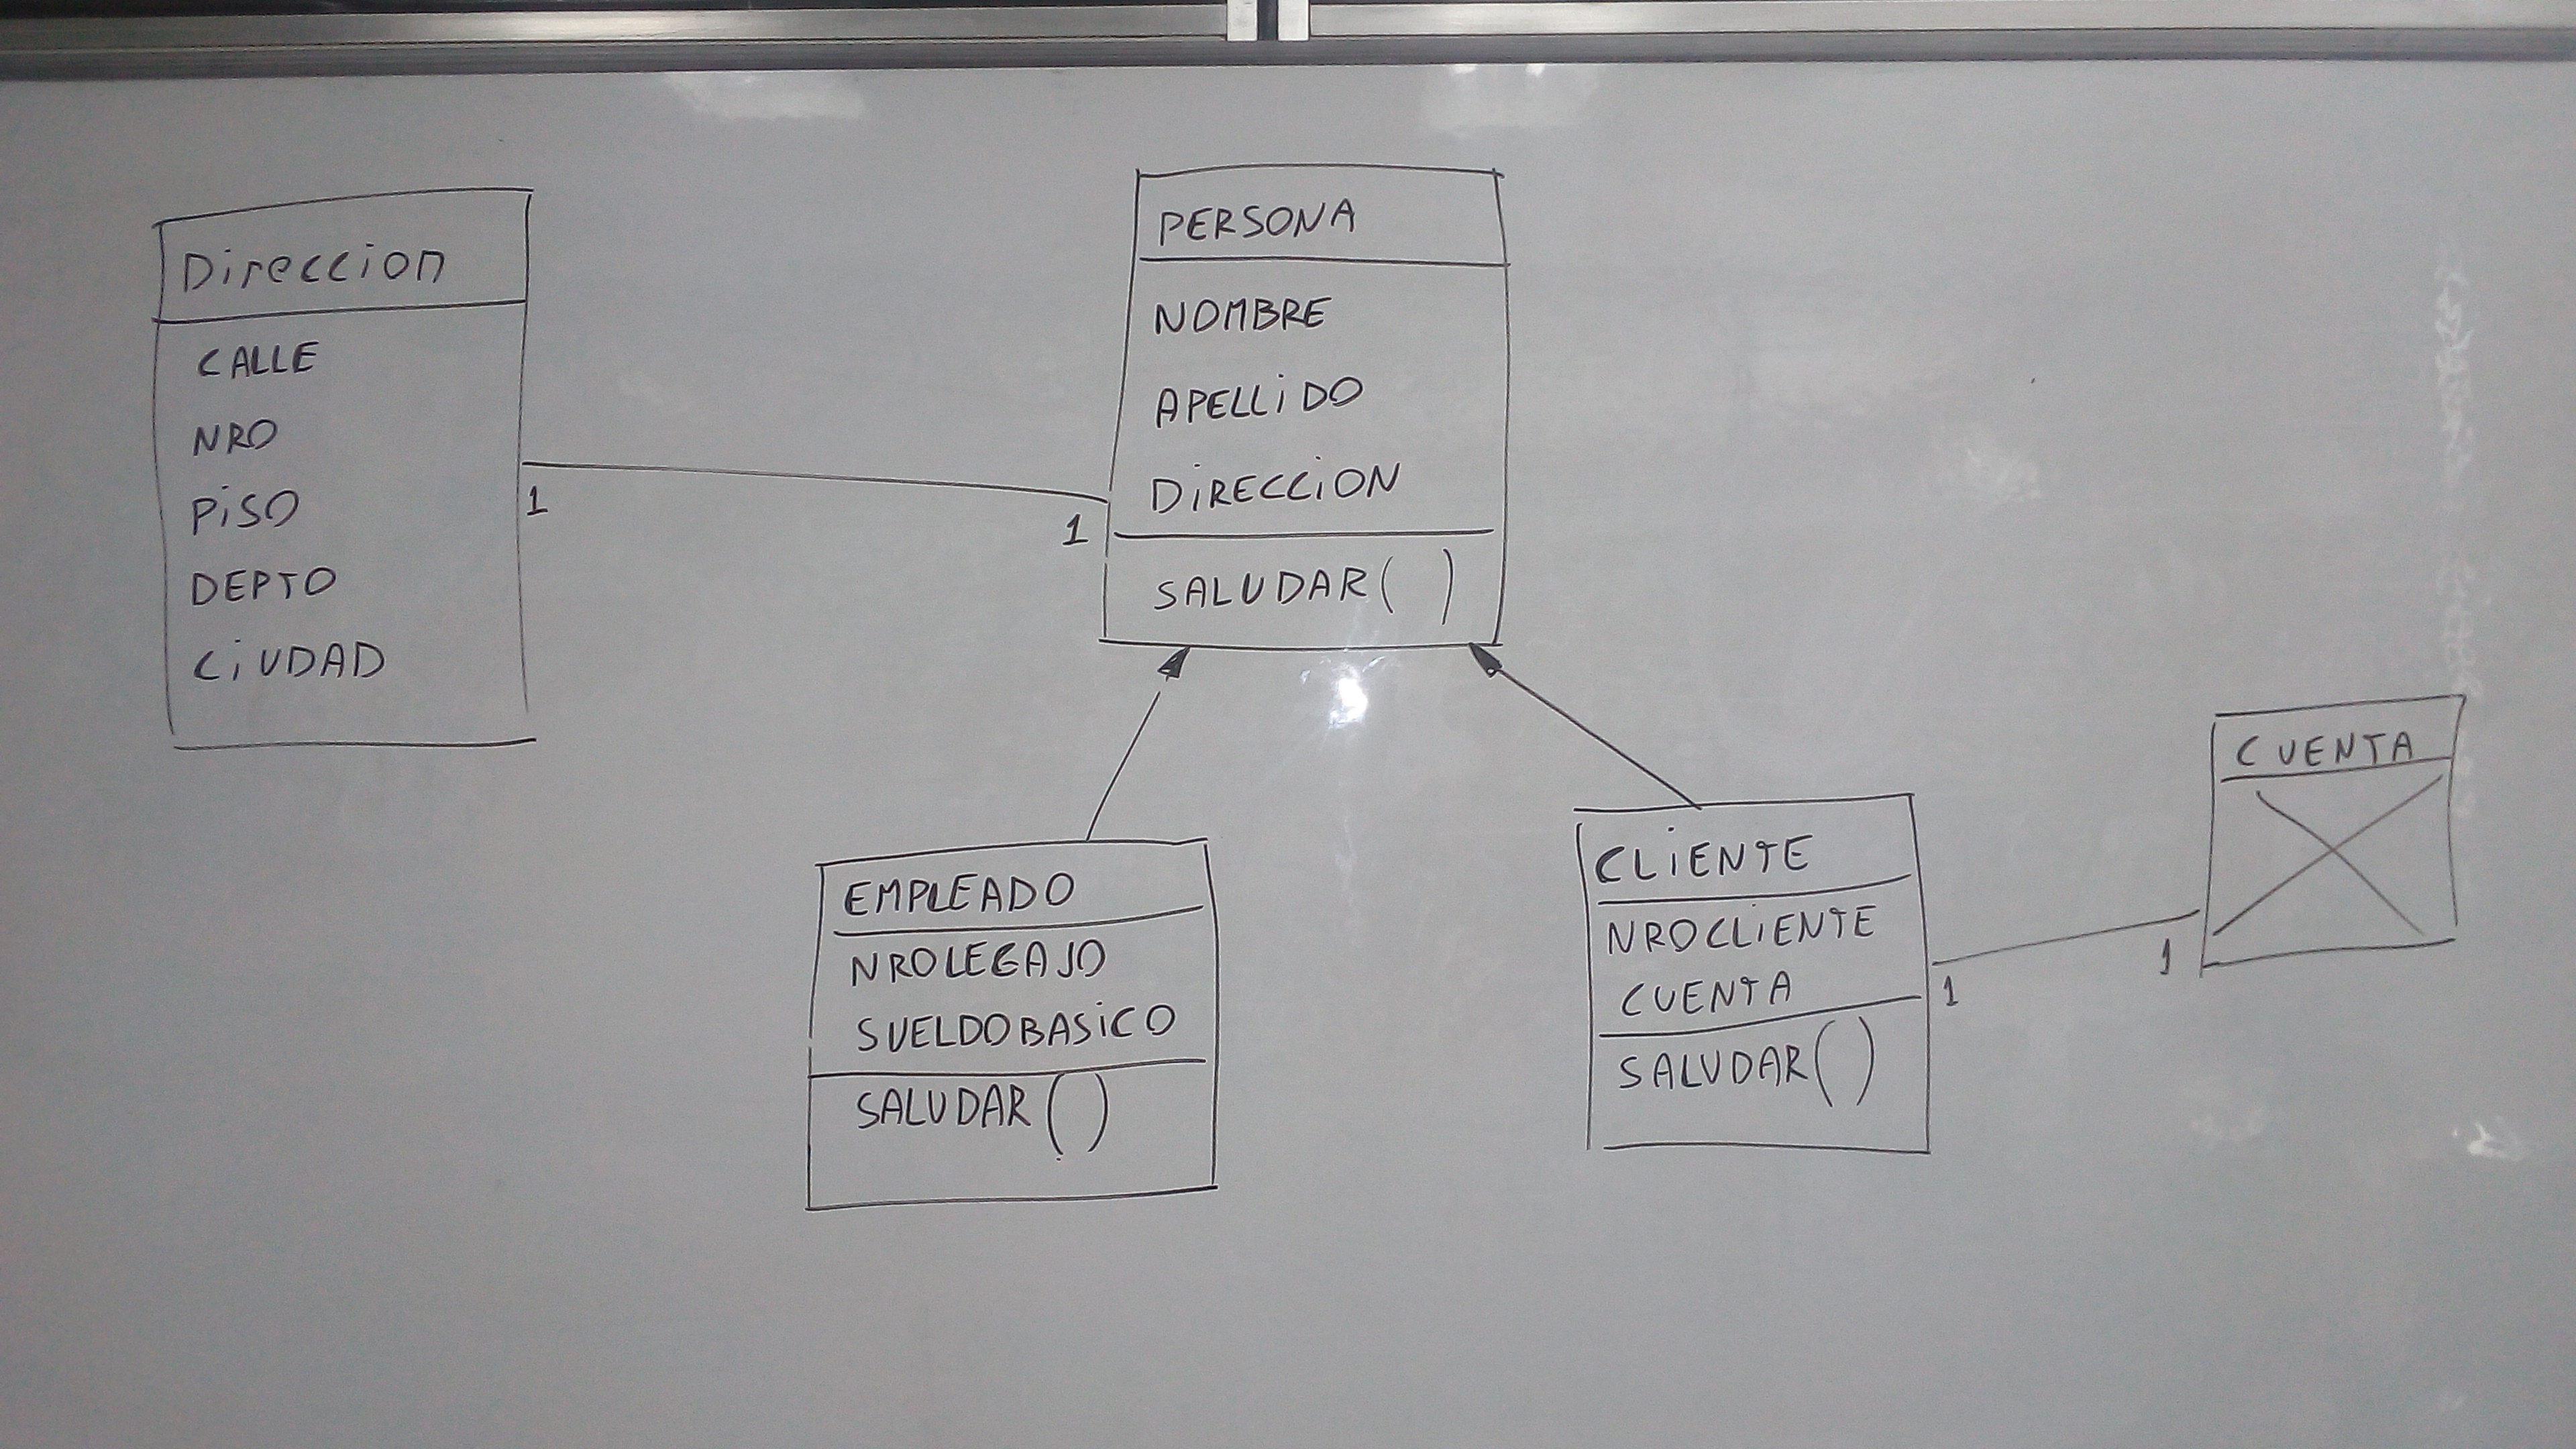 Direccion
CALLE
NRO
PISO
DEPTO
CIUDAD
1
1
PERSONA
NOMBRE
APELLIDO
DIRECCION
SALUDAR( )
EMPLEADO
NROLEGAJO
SUELDOBASICO
SALUDAR()
CLIENTE
NROCLIENTE
CUENTA
SALUDAR()
1
1
CUENTA